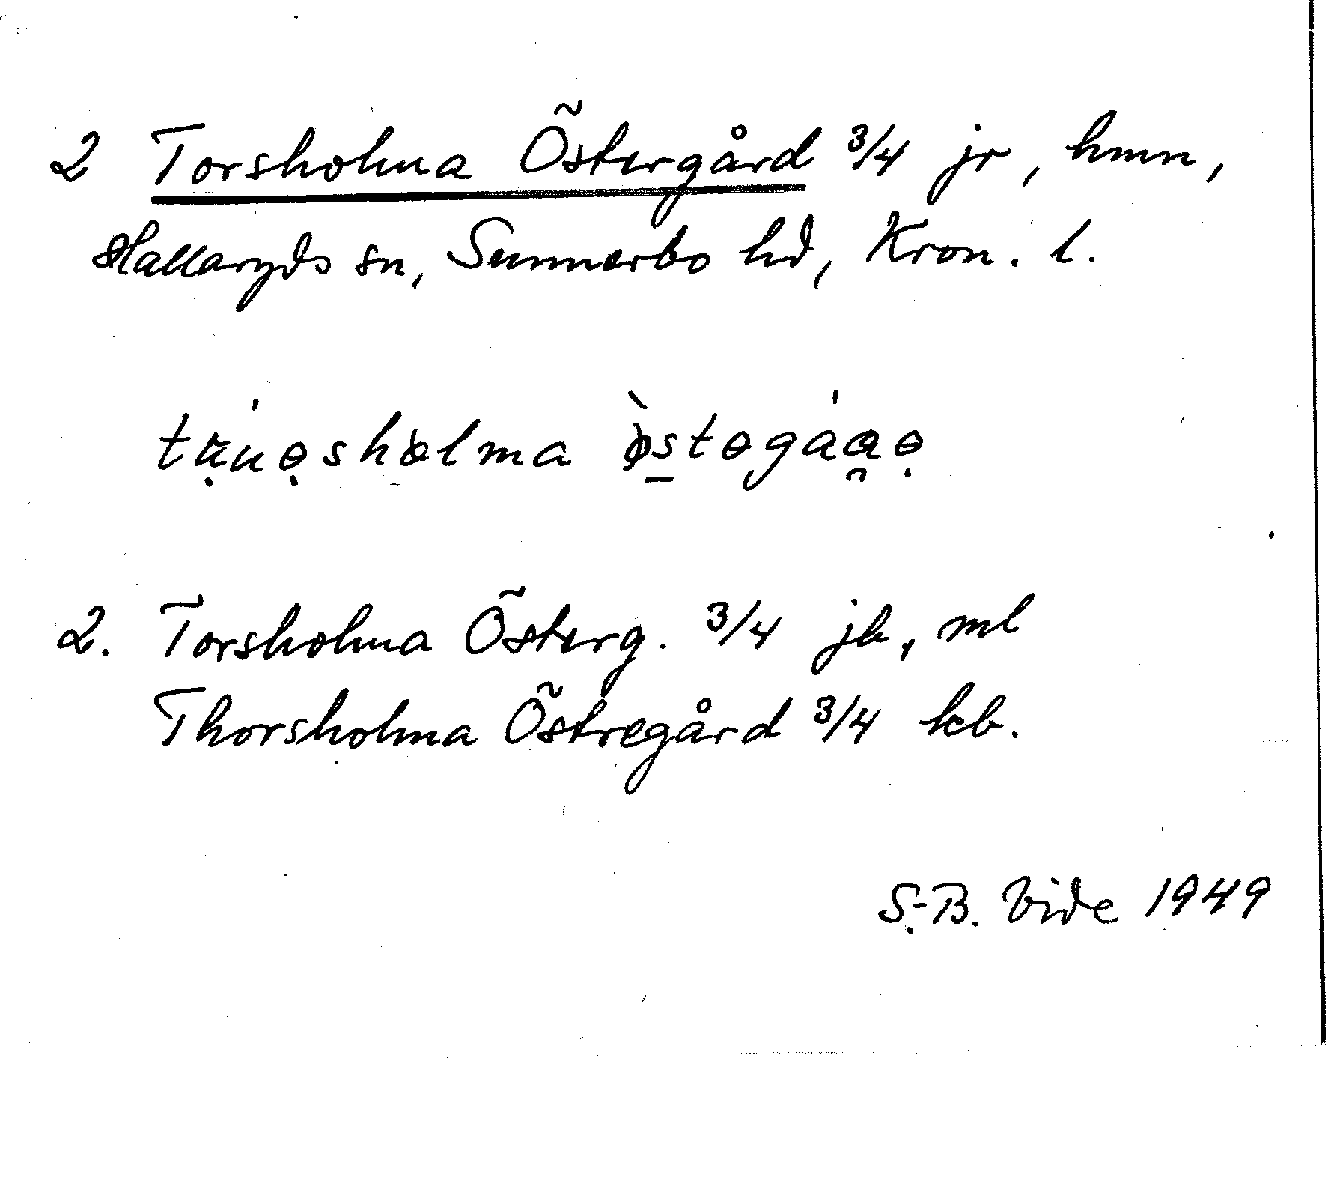 2 Torsholma Östergård 3/4 jr, hmn,
Hallaryds sn, Sunnerbo hd, Kron. l.
2. Torsholma Österg. 3/4 jb, ml
Thorsholma Östregård 3/4 kb.
S.-B. Vide 1949